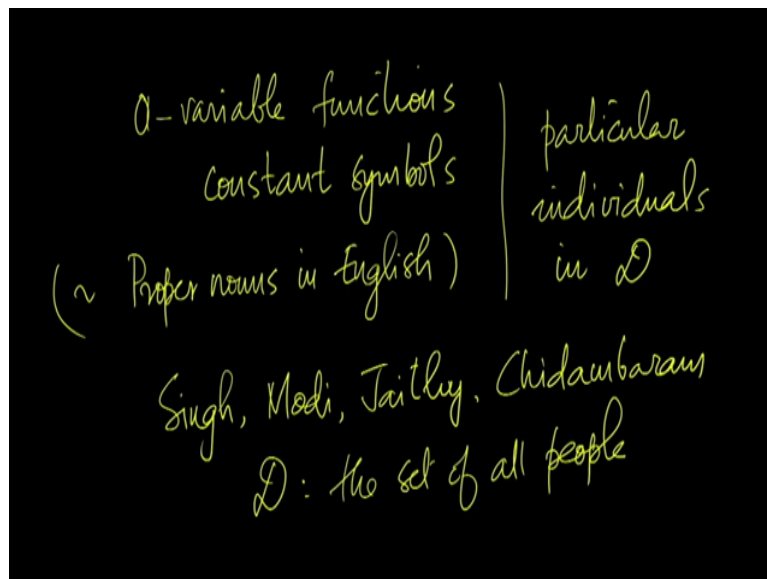 0-variable functions
constant symbols
(~ Proper nouns in English)
particular
individuals
in D
Singh, Modi, Jaitley, Chidambaram
D : the set of all people